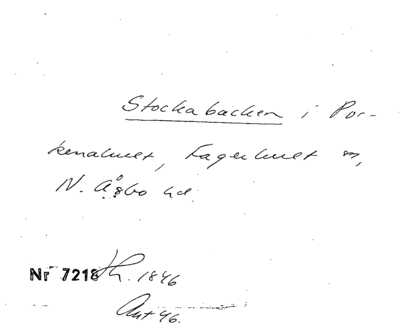 Stockabacken i Por-
kenahult, Fagerhult sn,
N. Åsbo hd.
Nr 7218 Lh. 1846
Ant 46.